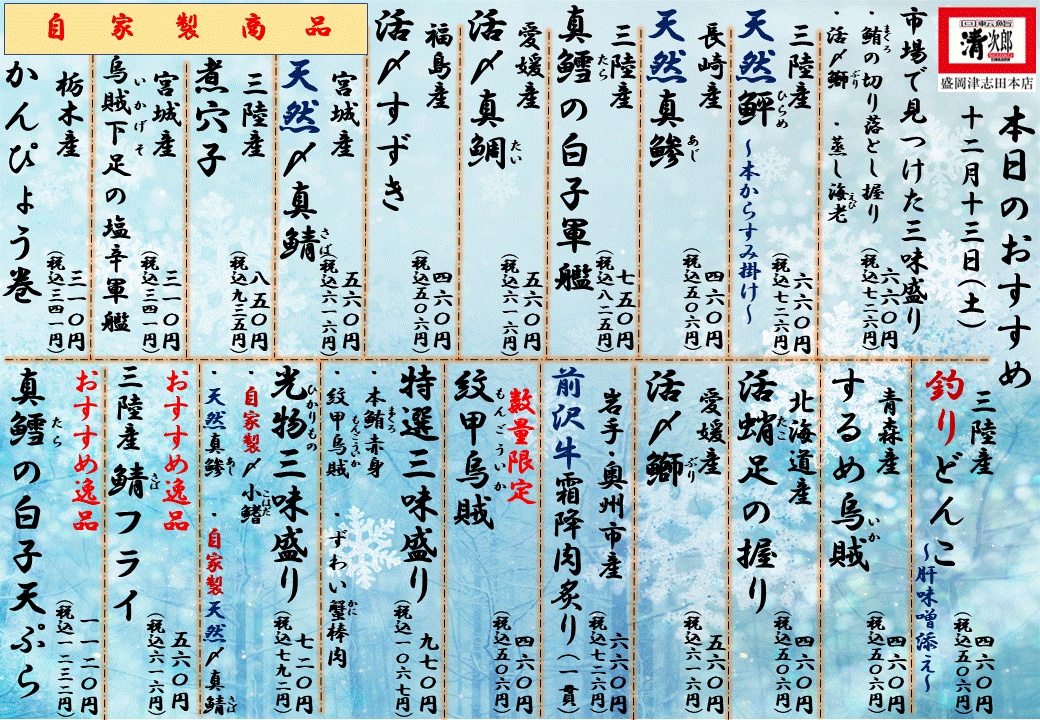 回転鮨
清次郎
盛岡津志田本店
本日のおすすめ
十二月十三日(土)
市場で見つけた三味盛り
・鮪の切り落とし握り
まぐろ
・活〆鰤 ・蒸し海老
ぶり
えび
六六〇円
(税込七二六円)
三陸産
天然鮃
ひらめ
~本からすみ掛け~
六六〇円
(税込七二六円)
長崎産
天然真鯵
あじ
四六〇円
(税込五〇六円)
三陸産
真鱈の白子軍艦
たら
七五〇円
(税込八二五円)
愛媛産
活〆真鯛
たい
五六〇円
(税込六一六円)
福島産
活〆すずき
四六〇円
(税込五〇六円)
自家製商品
宮城産
天然〆真鯖
さば
五六〇円
(税込六一六円)
三陸産
煮穴子
八五〇円
(税込九三五円)
宮城産
烏賊下足の塩辛軍艦
いかげそ
三一〇円
(税込三四一円)
栃木産
かんぴょう巻
三一〇円
(税込三四一円)
三陸産
釣りどんこ
~肝味噌添え~
四六〇円
(税込五〇六円)
青森産
するめ烏賊
いか
四六〇円
(税込五〇六円)
北海道産
活蛸足の握り
たこ
四六〇円
(税込五〇六円)
愛媛産
活〆鰤
ぶり
五六〇円
(税込六一六円)
岩手・奥州市産
前沢牛霜降肉炙り(一貫)
六六〇円
(税込七二六円)
数量限定
紋甲烏賊
もんごういか
四六〇円
(税込五〇六円)
特選三味盛り
・本鮪赤身
まぐろ
・紋甲烏賊 ・ずわい蟹棒肉
もんごういか
かに
九七〇円
(税込一〇六七円)
光物三味盛り
ひかりもの
・自家製〆小鰭
こはだ
・天然真鯵 ・自家製天然〆真鯖
あじ
さば
七二〇円
(税込七九二円)
おすすめ逸品
三陸産鯖フライ
さば
五六〇円
(税込六一六円)
おすすめ逸品
真鱈の白子天ぷら
たら
一一二〇円
(税込一二三二円)